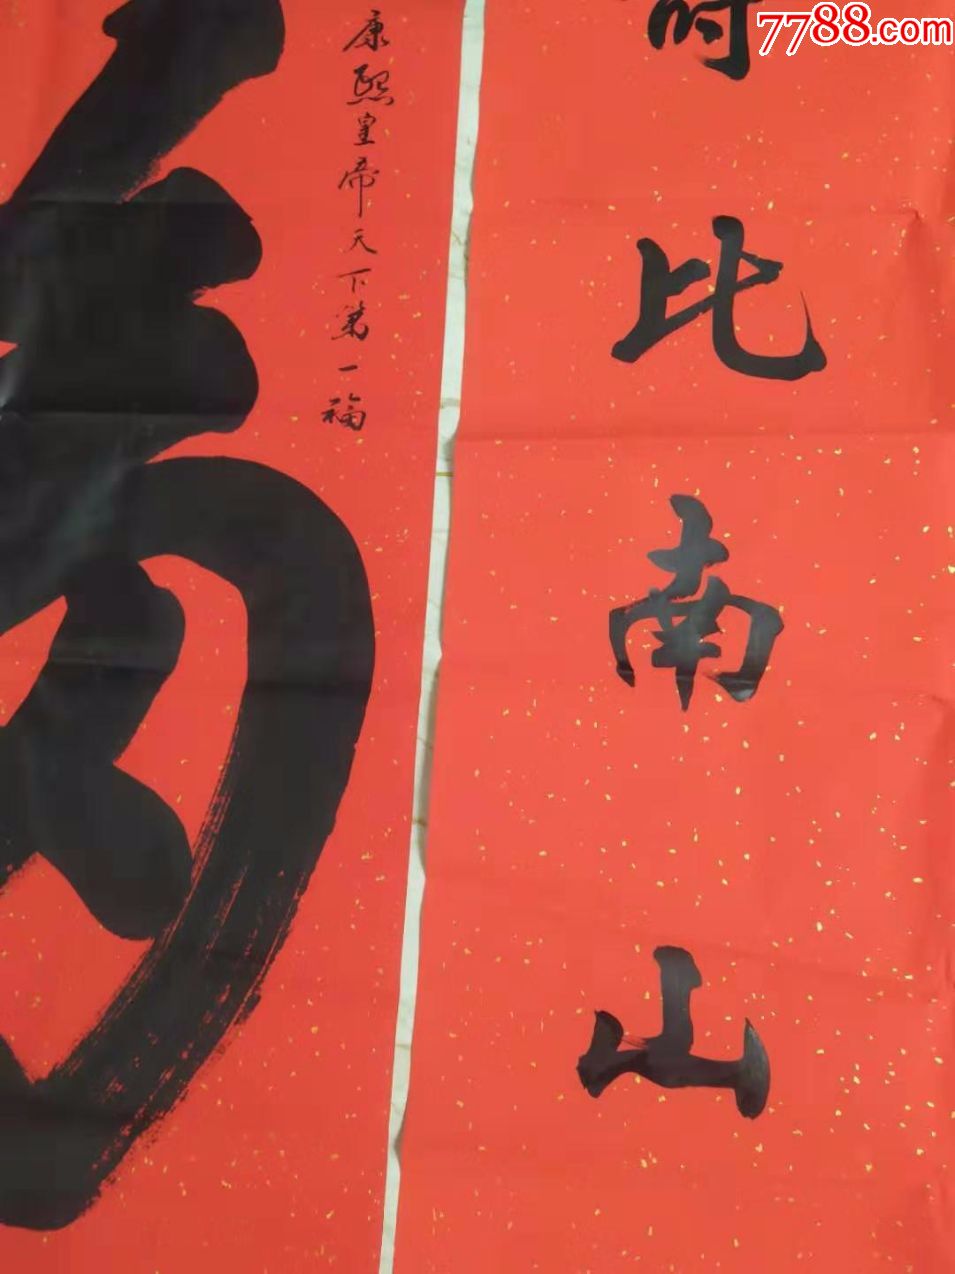 7788.com
比南山
康熙皇帝天下第一福